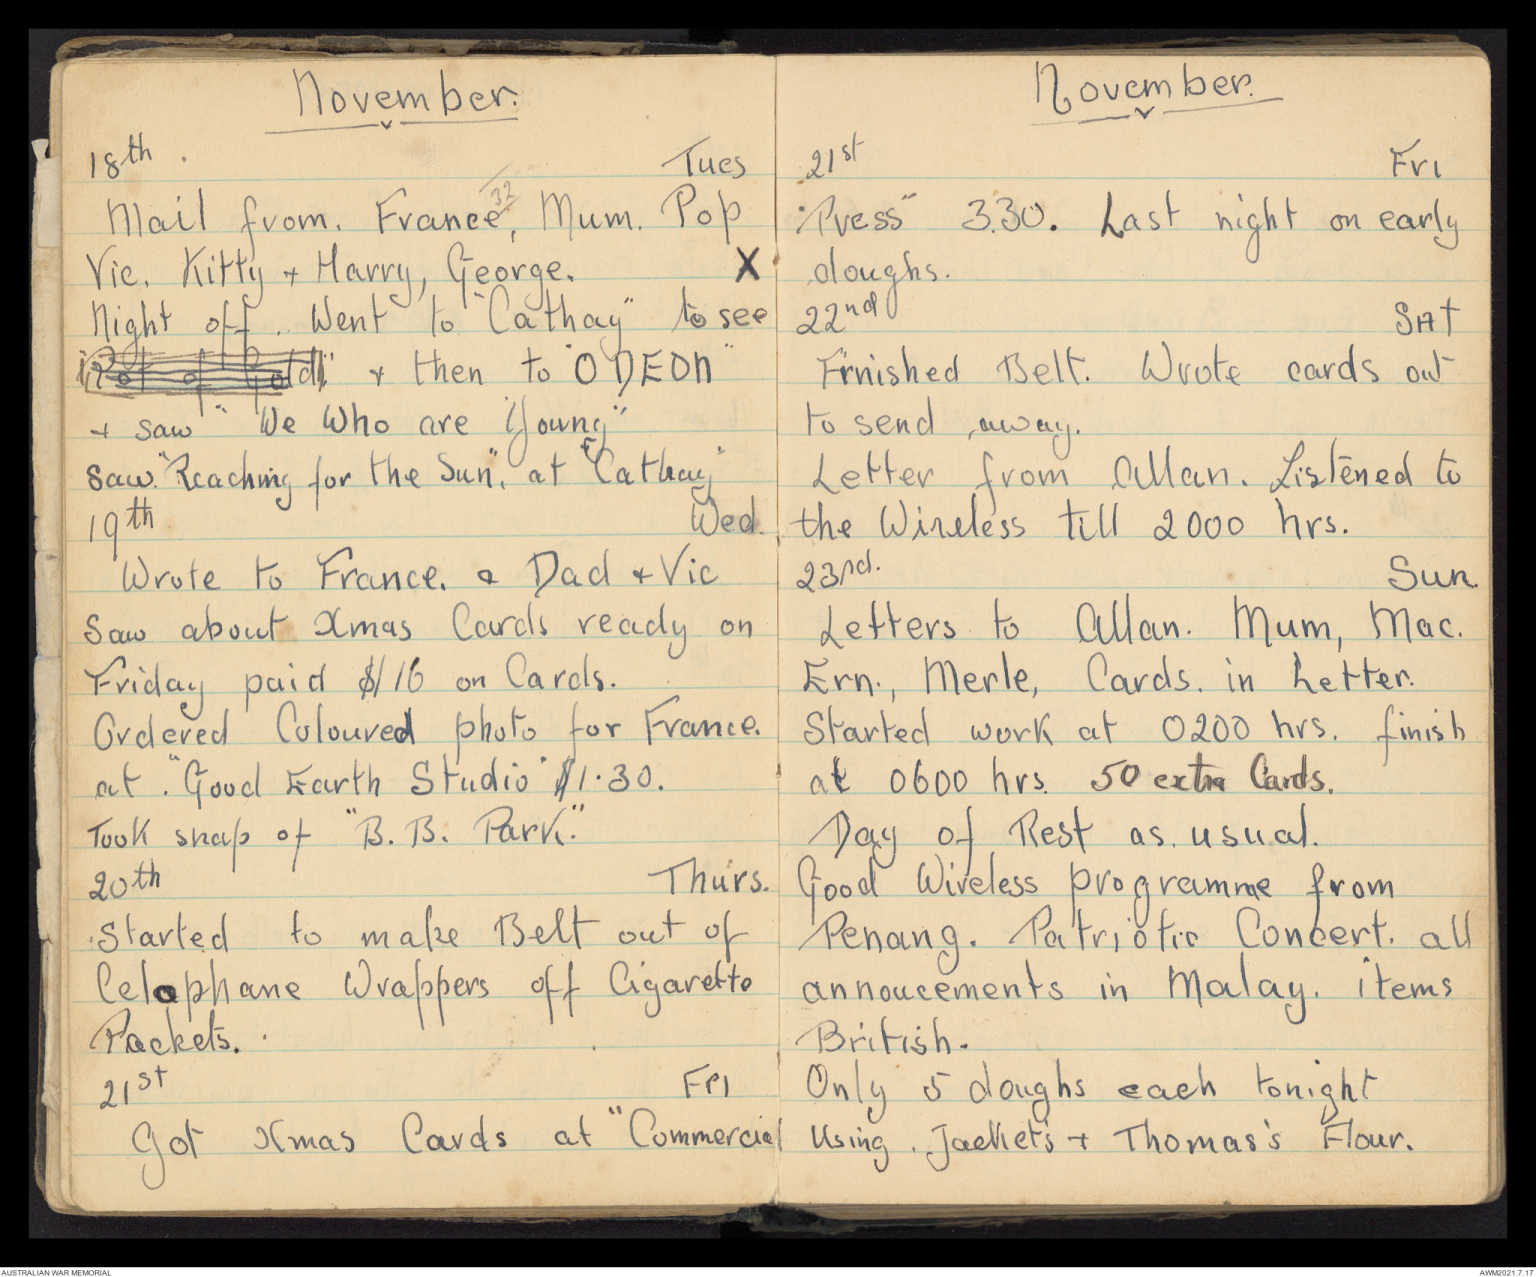 November.
18th. Tues
32
Mail from. France, Mum. Pop
Vic. Kitty + Harry, George. X
Night off. Went to "Cathay" to see
"Pot of Gold" + then to "ODEON"
+ saw "We Who are Young"
saw "Reaching for the Sun", at "Cathay"
19th Wed.
Wrote to France. & Dad + Vic
Saw about Xmas Cards ready on
Friday paid $16 on Cards.
Ordered Coloured photo for France.
at. "Good Earth Studio" $1.30.
Took snap of "B.B. Park."
20th Thurs.
Started to make Belt out of
Celophane Wrappers off Cigarette
Packets.
21st Fri
Got Xmas Cards at "Commercial
November.
21st Fri
Press" 3.30. Last night on early
doughs.
22nd Sat
Finished Belt. Wrote cards out
to send away.
Letter from Allan. Listened to
the Wireless till 2000 hrs.
23rd. Sun.
Letters to Allan. Mum, Mac.
Ern., Merle, Cards. in Letter.
Started work at 0200 hrs. finish
at 0600 hrs. 50 extra Cards.
Day of Rest as. usual.
Good Wireless programme from
Penang. Patriotic Concert. all
annoucements in Malay. items
British.
Only 5 doughs each tonight
Using. Jacket's + Thomas's Flour.
AUSTRALIAN WAR MEMORIAL
AWM2021.7.17